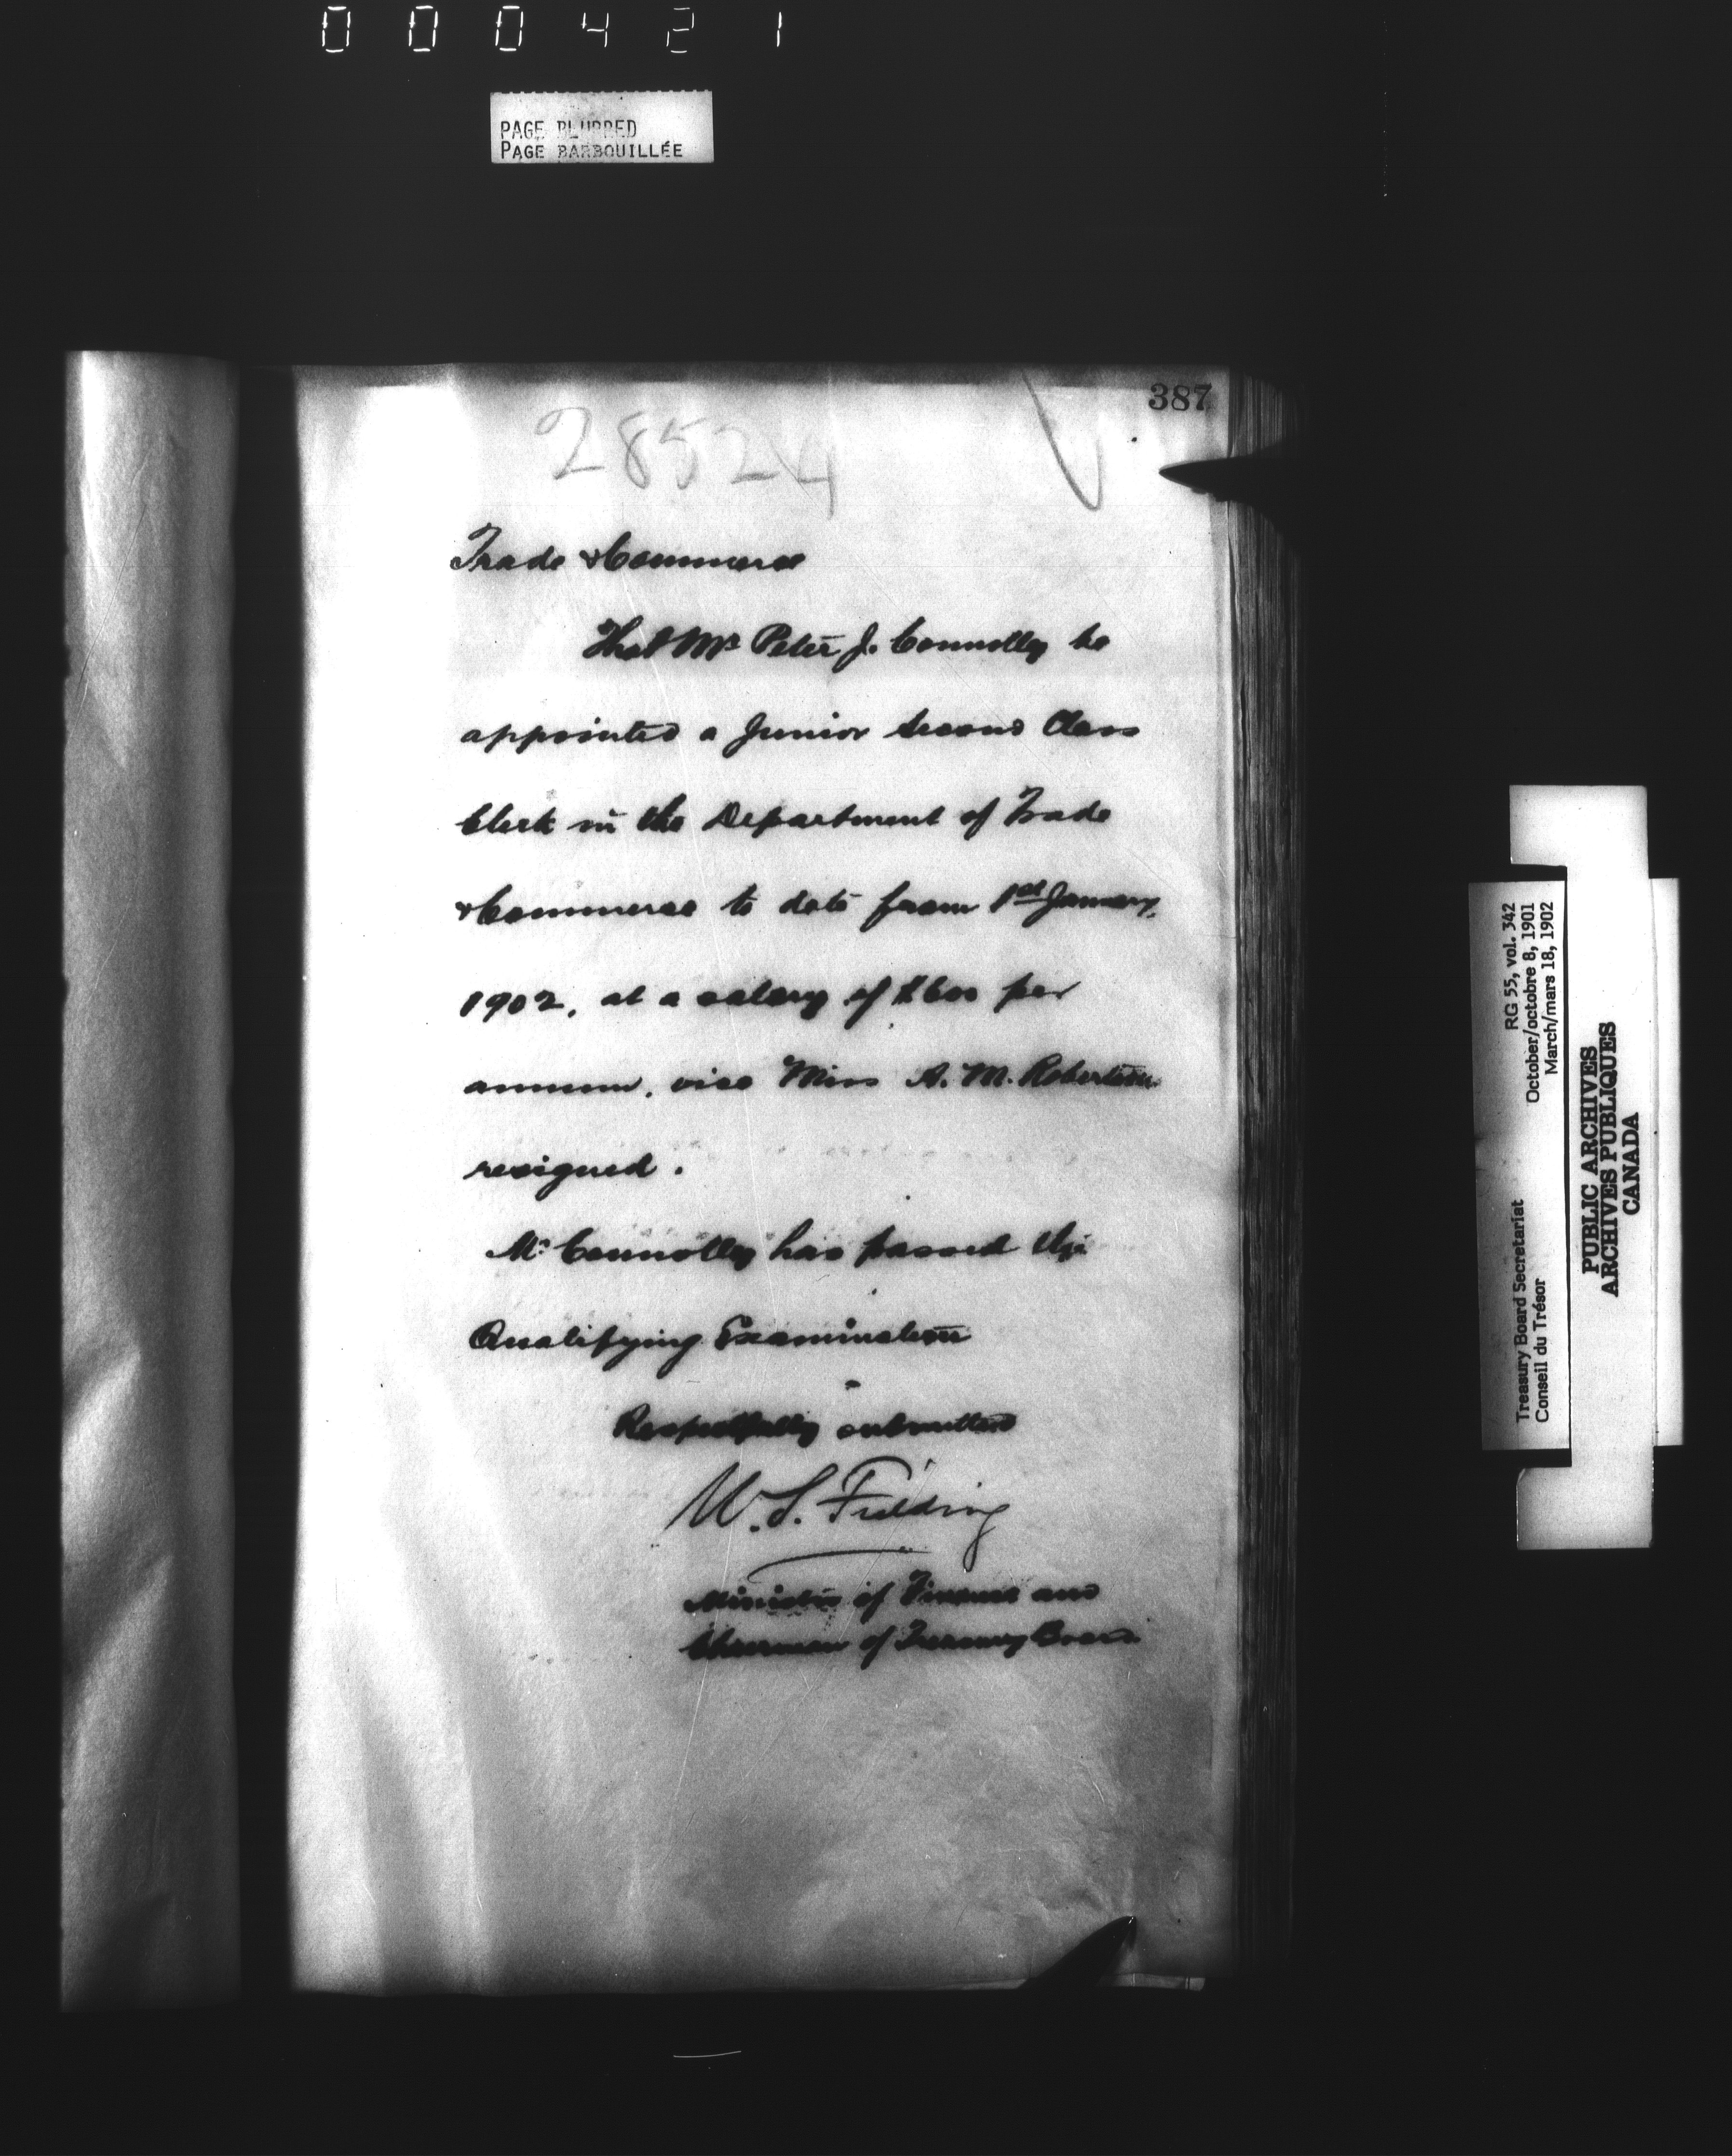 000421
PAGE BLURRED
PAGE BARBOUILLÉE
387
28524
Trade & Commerce
That Mr Peter J. Connolly be
appointed a Junior Second Class
Clerk in the Department of Trade
& Commerce to date from 1st January,
1902, at a salary of $600 per
annum, vice Miss A. M. Robertson
resigned.
Mr Connolly has passed the
Qualifying Examination
Respectfully submitted
W. S. Fielding
Minister of Finance and
Chairman of Treasury Board
Treasury Board Secretariat RG 55, vol. 342
Conseil du Trésor October/octobre 8, 1901
March/mars 18, 1902
PUBLIC ARCHIVES
ARCHIVES PUBLIQUES
CANADA